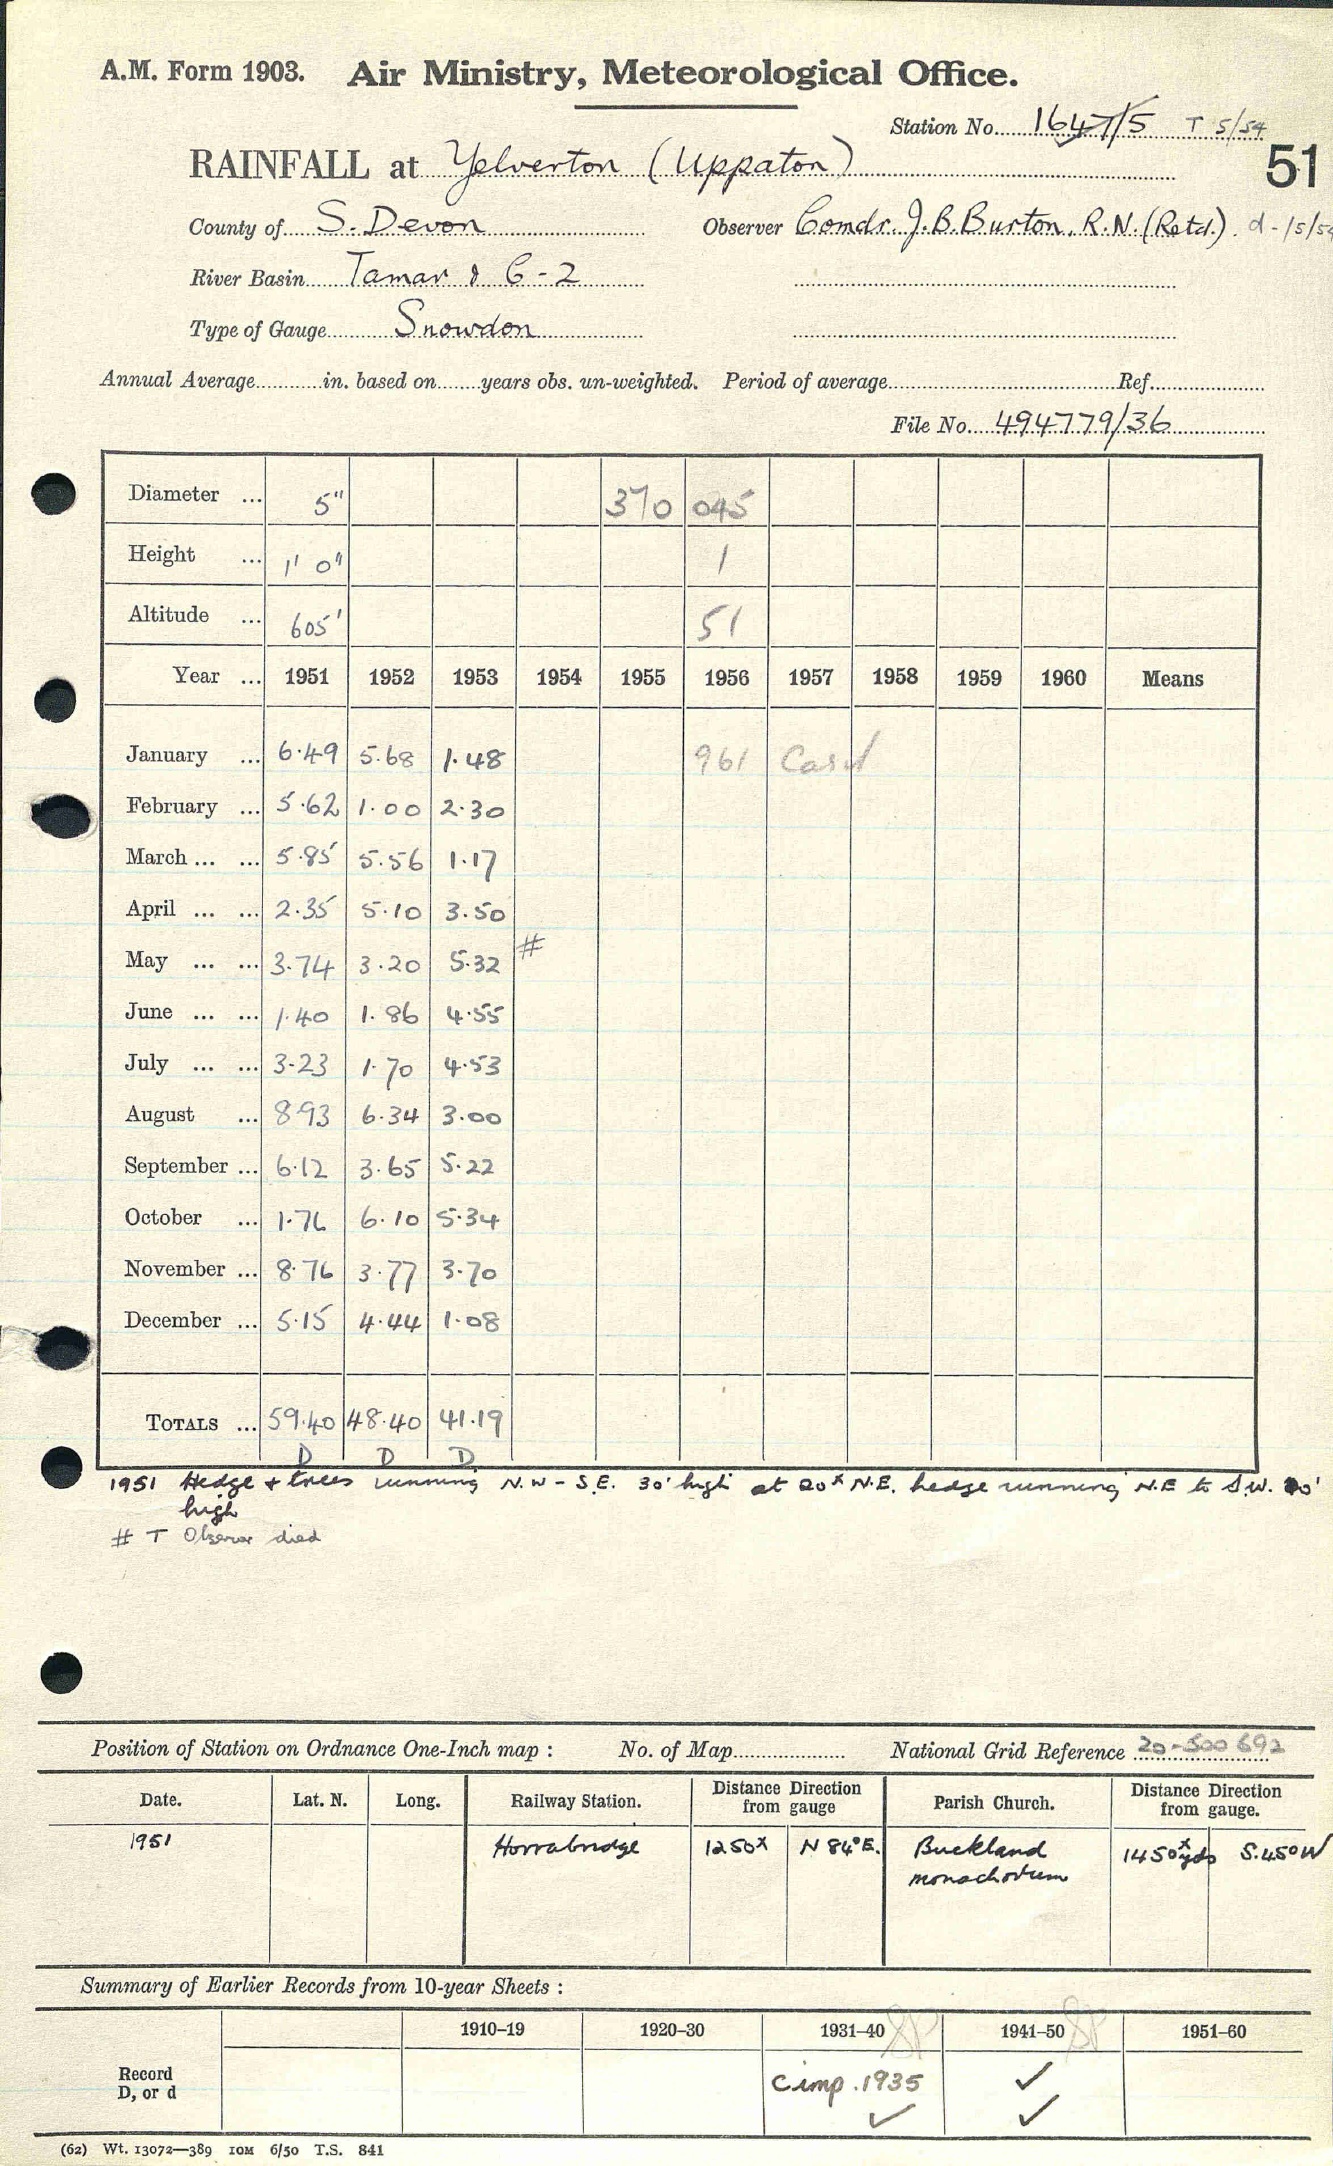 A.M. Form 1903. Air Ministry, Meteorological Office.
Station No. 1647/5 T 5/54
51
RAINFALL at Yelverton (Uppaton)
County of S. Devon Observer Comdr. J.B. Burton. R.N. (Retd.). d -/5/54
River Basin Tamar & 6-2
Type of Gauge Snowdon
Annual Average in. based on years obs. un-weighted. Period of average Ref.
File No. 494779/36
Diameter ... 5" 370 045
Height ... 1' 0" 1
Altitude ... 605' 51
Year ... 1951 1952 1953 1954 1955 1956 1957 1958 1959 1960 Means
January ... 6.49 5.68 1.48 961 Card
February ... 5.62 1.00 2.30
March ... ... 5.85 5.56 1.17
April ... ... 2.35 5.10 3.50
May ... ... 3.74 3.20 5.32 #
June ... ... 1.40 1.86 4.55
July ... ... 3.23 1.70 4.53
August ... 8.93 6.34 3.00
September ... 6.12 3.65 5.22
October ... 1.76 6.10 5.34
November ... 8.76 3.77 3.70
December ... 5.15 4.44 1.08
TOTALS ... 59.40 48.40 41.19
D D D
1951 Hedge + trees running N.W - S.E. 30' high at 20x N.E. hedge running N.E to S.W.
high
# T Observer died
Position of Station on Ordnance One-Inch map : No. of Map National Grid Reference 20-500692
Date. Lat. N. Long. Railway Station. Distance Direction from gauge Parish Church. Distance Direction from gauge.
1951 Horrabridge 1250x N 84° E. Buckland 1450x yds S.45°W
monachorum
Summary of Earlier Records from 10-year Sheets :
1910–19 1920–30 1931–40 SP 1941–50 SP 1951–60
Record
D, or d
C imp. 1935 ✓
✓ ✓
(62) Wt. 13072—389 10M 6/50 T.S. 841